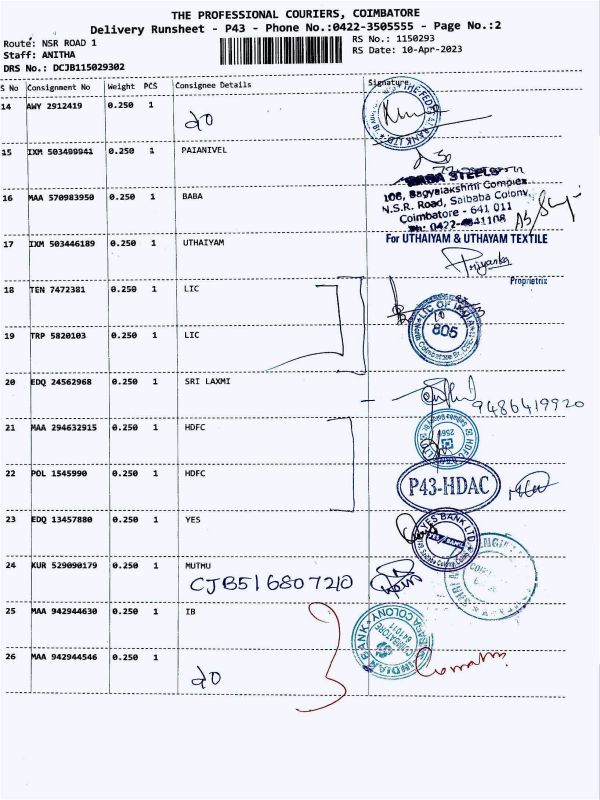 THE PROFESSIONAL COURIERS, COIMBATORE
Delivery Runsheet - P43 - Phone No.:0422-3505555 - Page No.:2
Route: NSR ROAD 1
Staff: ANITHA
DRS No.: DCJB115029302
RS No.: 1150293
RS Date: 10-Apr-2023
S No Consignment No Weight PCS Consignee Details Signature
14 AWY 2912419 0.250 1
do
THE FEDERAL BANK LTD
15 IXM 503499941 0.250 1 PAIANIVEL
16 MAA 570983950 0.250 1 BABA
BABA STEELS
108, Bagyalakshmi Complex
N.S.R. Road, Saibaba Colony,
Coimbatore - 641 011
Ph: 0422-4341108
17 IXM 503446189 0.250 1 UTHAIYAM
For UTHAIYAM & UTHAYAM TEXTILE
Priyanka
Proprietrix
18 TEN 7472381 0.250 1 LIC
LIC OF INDIA
805
19 TRP 5820103 0.250 1 LIC
20 EDQ 24562968 0.250 1 SRI LAXMI
9486419920
21 MAA 294632915 0.250 1 HDFC
HDFC
22 POL 1545990 0.250 1 HDFC
P43-HDAC
23 EDQ 13457880 0.250 1 YES
YES BANK LTD
24 KUR 529090179 0.250 1 MUTHU
CJB516807210
25 MAA 942944630 0.250 1 IB
INDIAN BANK
COIMBATORE
641011
26 MAA 942944546 0.250 1
do